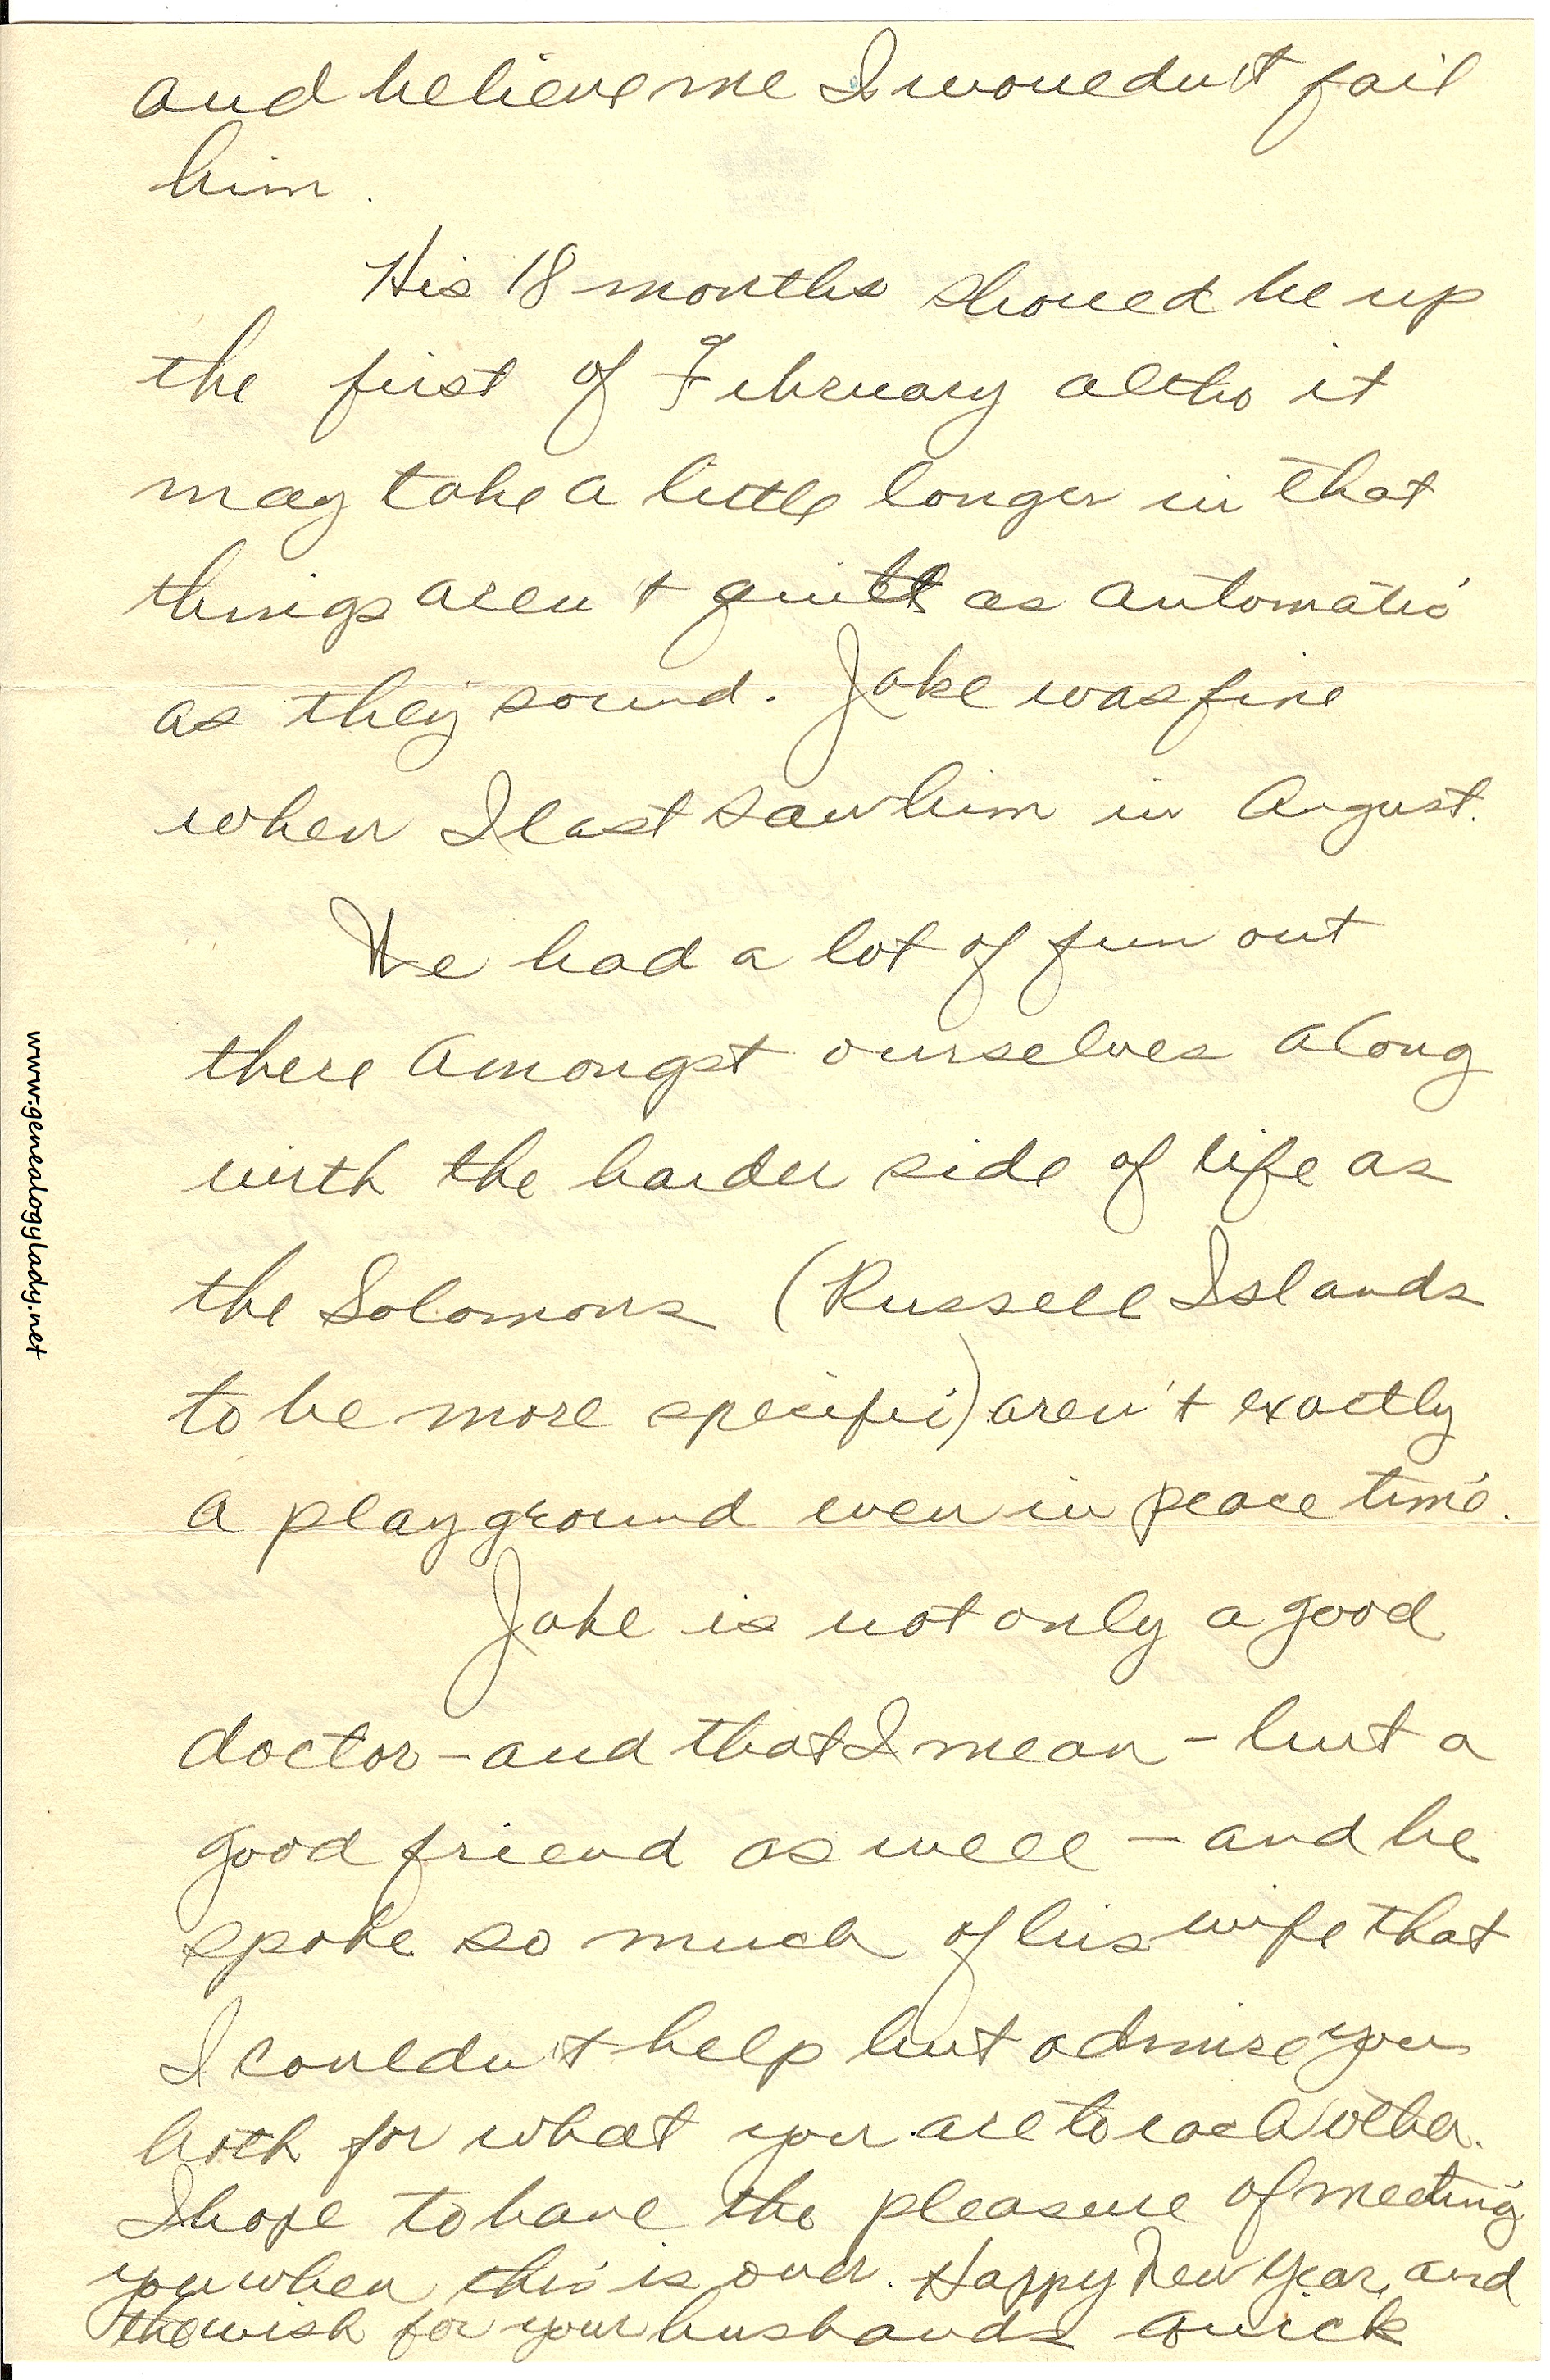 and believe me I wouldn't fail
him.
His 18 months should be up
the first of February altho it
may take a little longer in that
things aren't quite as automatic
as they sound. Jake was fine
when I last saw him in August.
We had a lot of fun out
there amongst ourselves along
with the harder side of life as
the Solomons (Russell Islands
to be more specific) aren't exactly
a playground even in peace time.
Jake is not only a good
doctor - and that I mean - but a
good friend as well - and he
spoke so much of his wife that
I couldn't help but admire you
both for what you are to each other.
I hope to have the pleasure of meeting
you when this is over. Happy New Year, and
the wish for your husbands quick
www.genealogylady.net